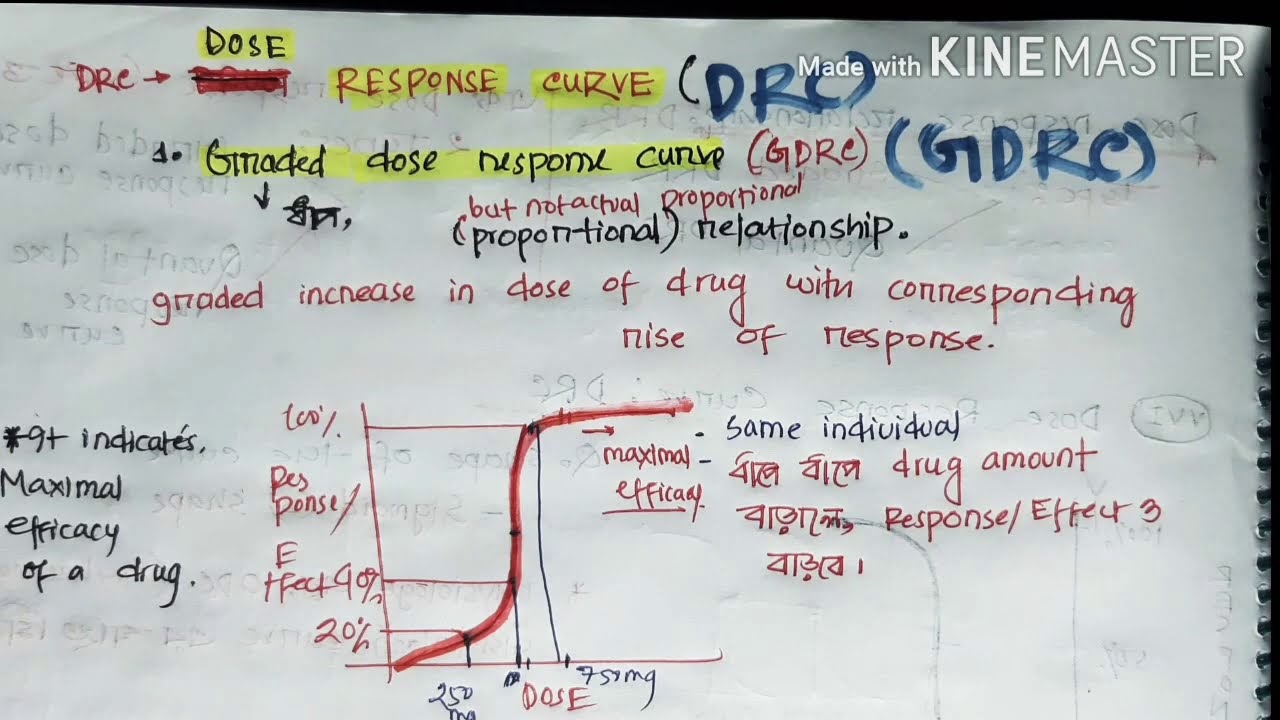 Made with KINEMASTER
DOSE
DRC → RESPONSE CURVE (DRC)
1. Graded dose response curve (GDRC) (GDRC)
↓ ধাপ,
but not actual proportional
(proportional) relationship.
graded increase in dose of drug with corresponding
rise of response.
100%
* It indicates,
Maximal
efficacy
of a drug.
Res
ponse/
E
ffect 40%
20%
maximal
efficacy.
- same individual
- ধাপে ধাপে drug amount
বাড়ালে, Response/Effect ও
বাড়বে।
250
mg
DOSE
750mg